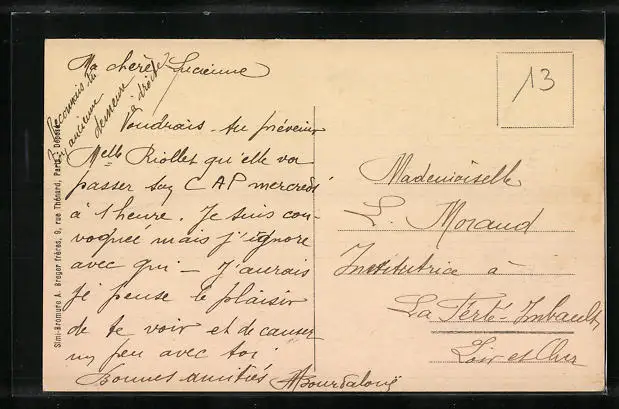 Ma chère Lucienne
Reconnais tu
ancienne
demeure
à droite?
Voudrais-tu prévenir
Melle Riollet qu'elle va
passer son CAP mercredi
à 1 heure. Je suis con-
voquée mais j'ignore
avec qui — J'aurais
je pense le plaisir
de te voir et de causer
un peu avec toi
Bonnes amitiés ABourdaloue
Simi-Bromure A. Breger frères, 9, rue Thénard, Paris. Déposé
13
Mademoiselle
L. Moraud
Institutrice à
La Ferté-Imbault
Loir et Cher